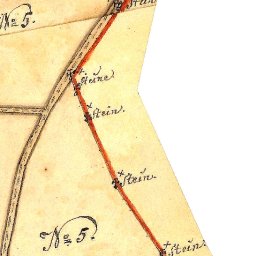 Stein
No 5.
Steine
Stein.
Stein.
No 5.
Stein.